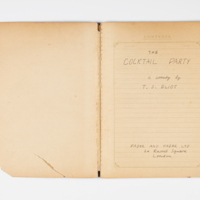 THE
COCKTAIL PARTY
a comedy by
T. S. ELIOT
FABER AND FABER LTD
24 Russell Square
London